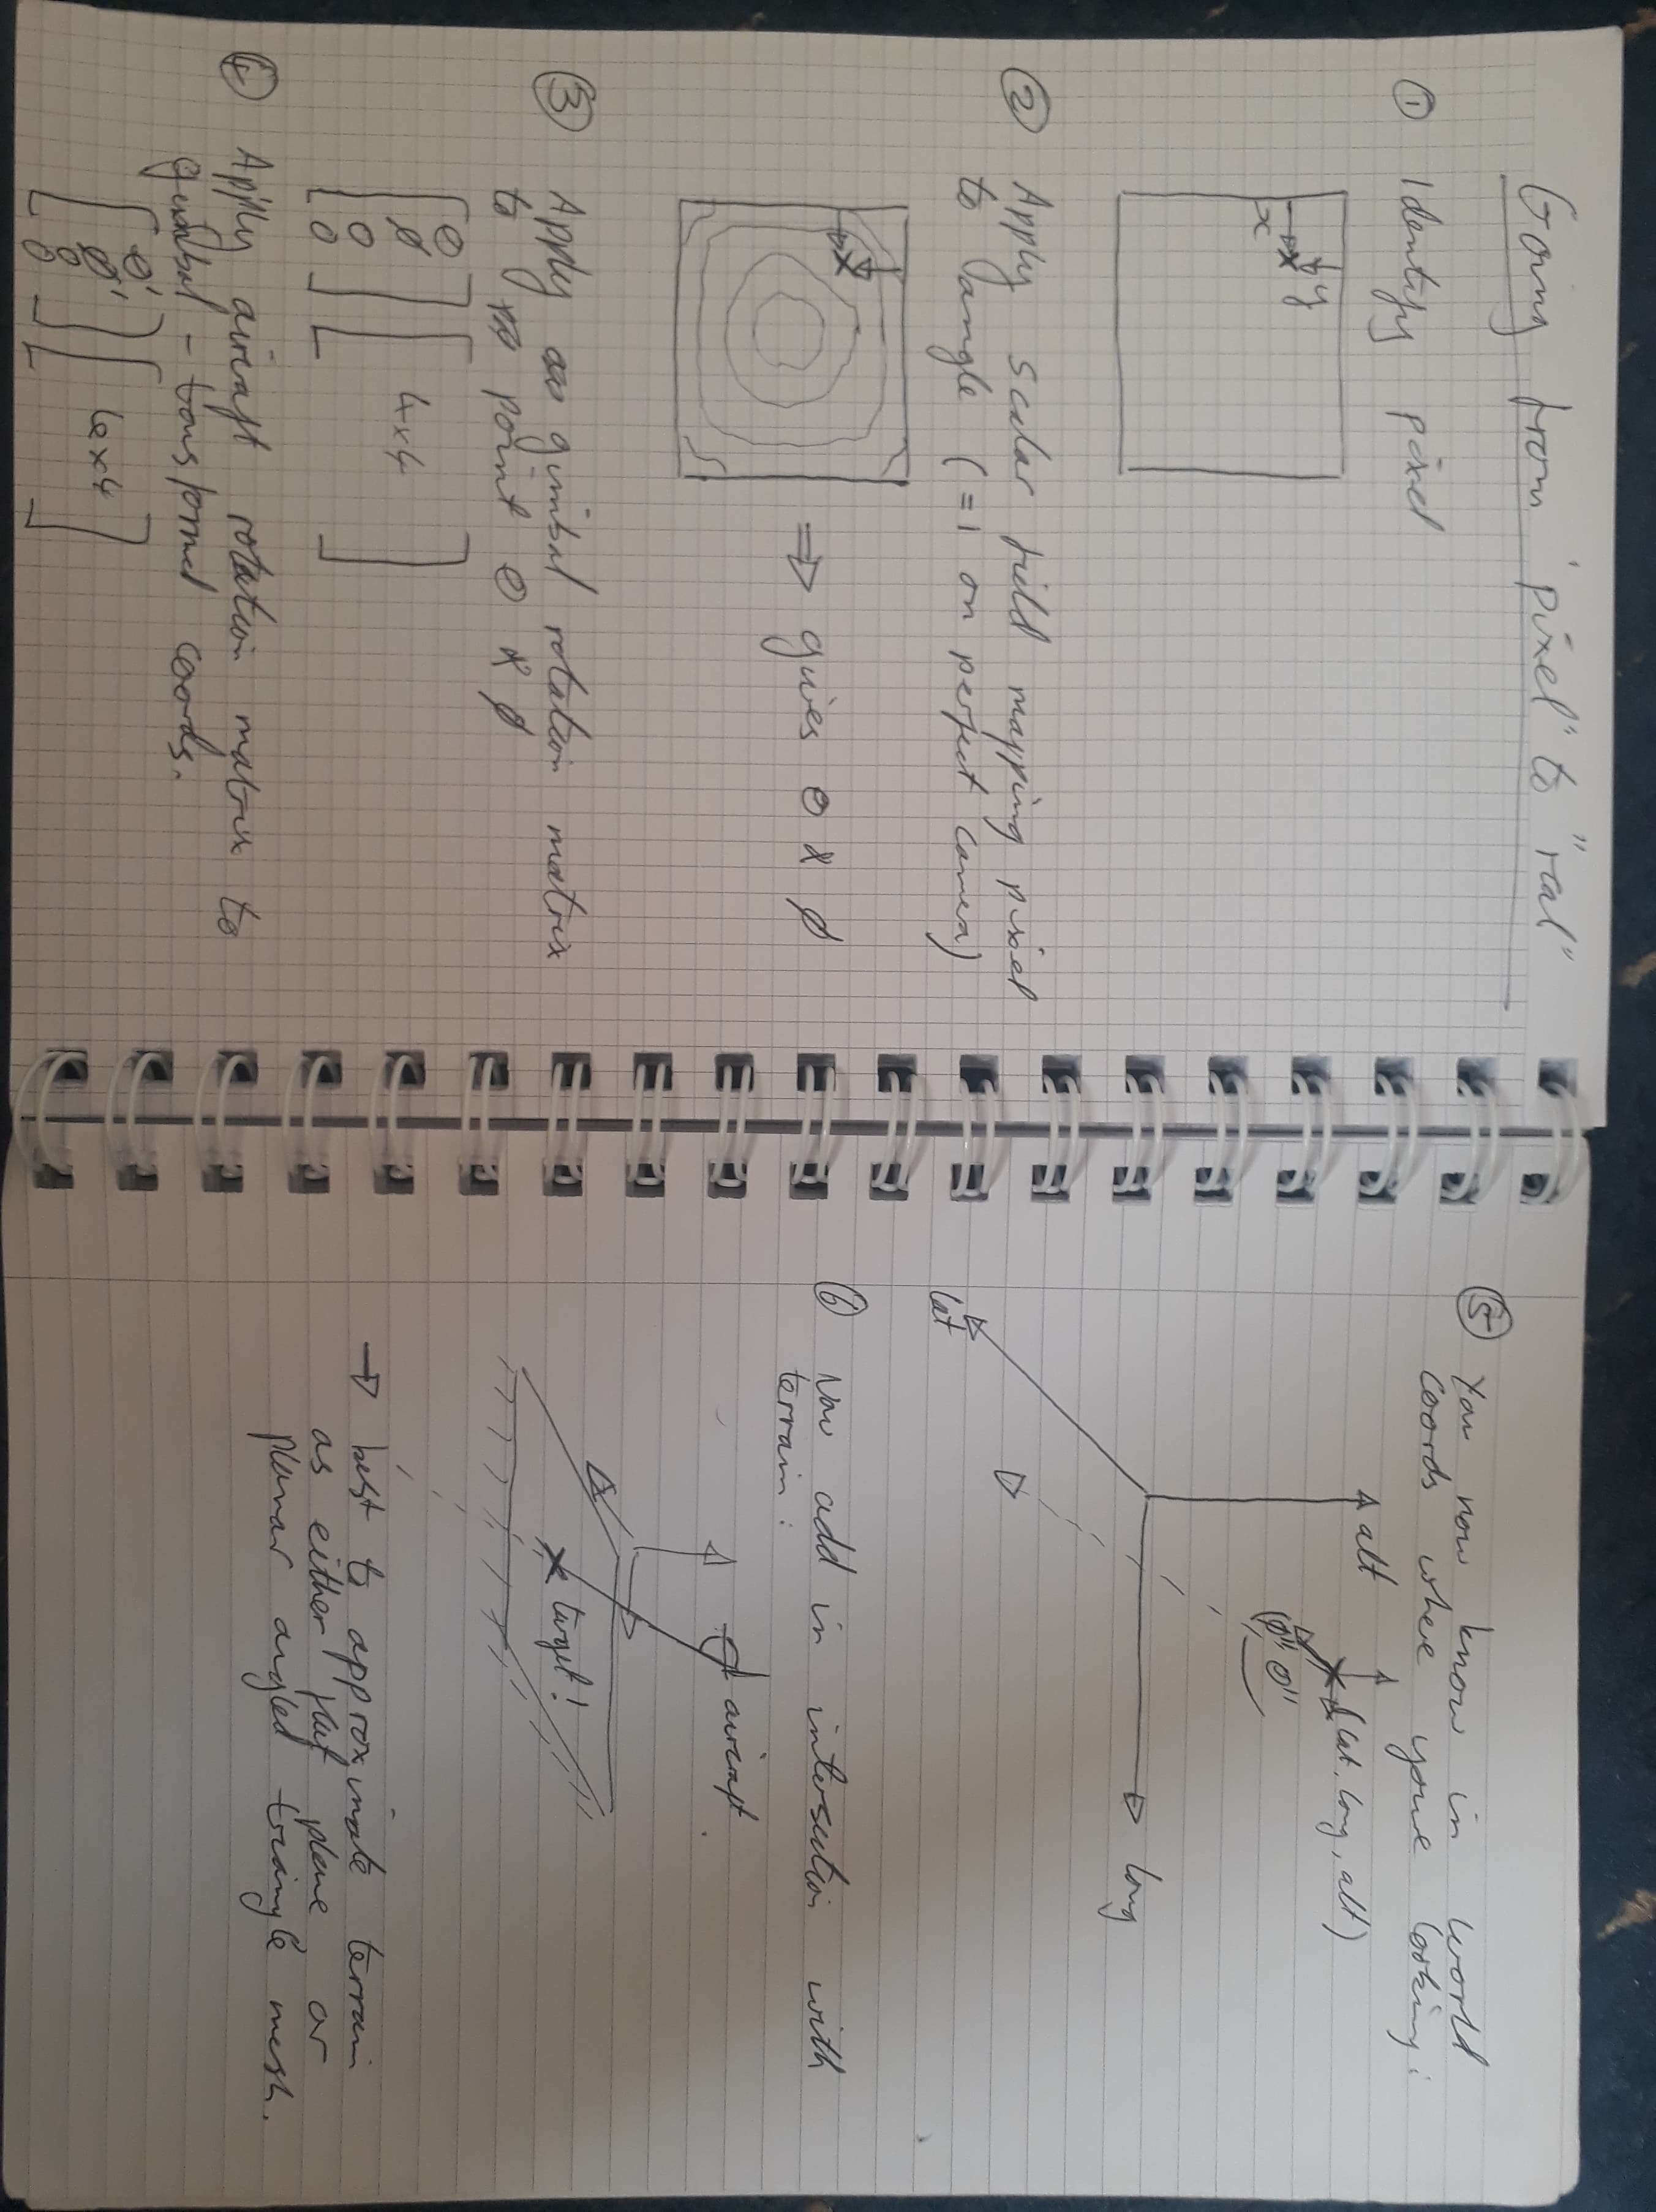 Going from "pixel" to "real"
① Identify pixel
y
x
② Apply scalar field mapping pixel
to angle (=1 on perfect camera)
⇒ gives θ & ϕ
③ Apply gimbal rotation matrix
to point θ & ϕ
[θ ϕ 0 0] [4x4]
④ Apply aircraft rotation matrix to
gimbal-transformed coords.
[θ' ϕ' 0 0] [4x4]
⑤ You now know in world
coords where you're looking:
alt
(lat, long, alt)
(ϕ'', θ'')
long
lat
⑥ Now add in intersection with
terrain:
aircraft
target!
→ best to approximate terrain
as either flat plane, or
planar angled triangle mesh.